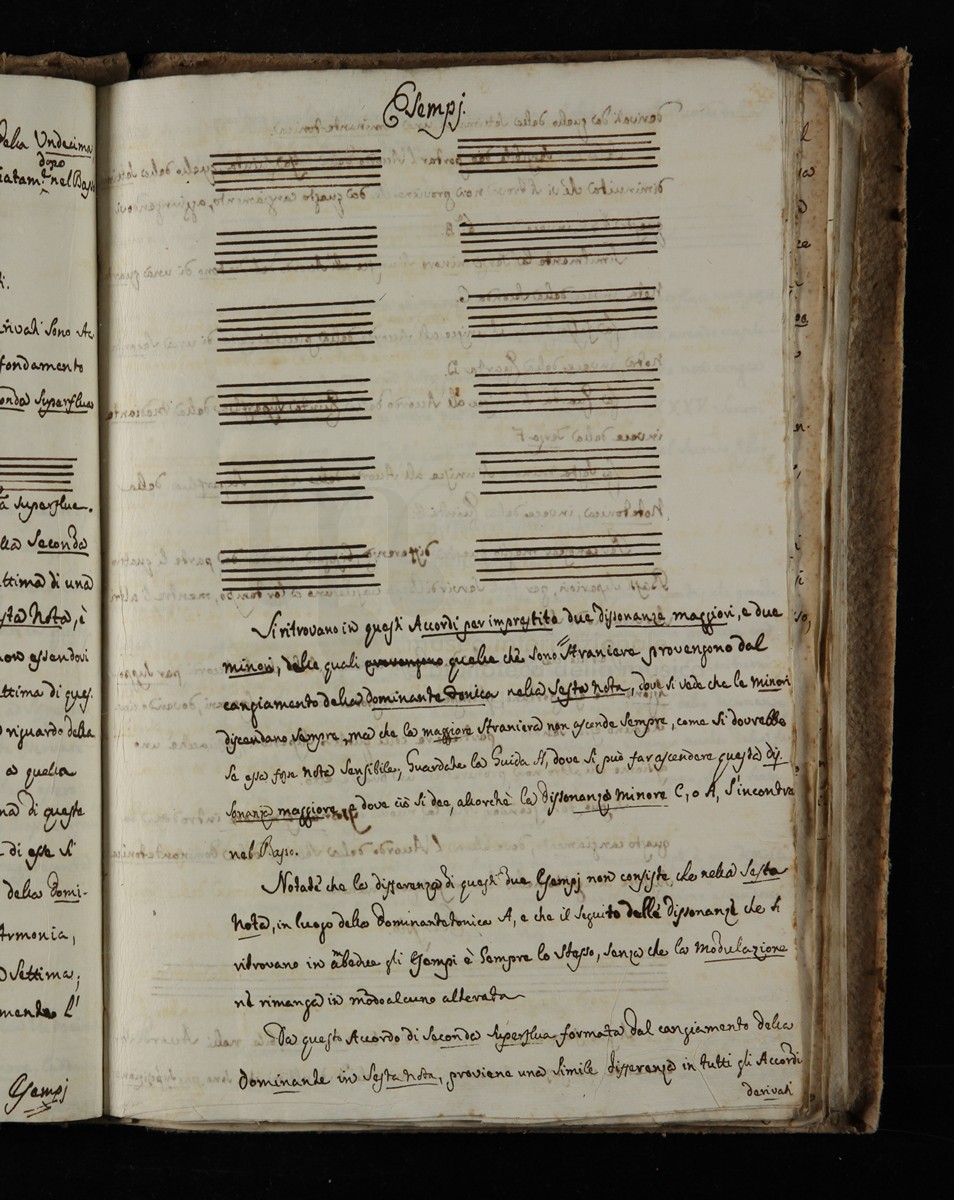 della Undecima
dopo
nel Basso
rivati sono Ac
fondamento
onda Superflua
Superflua.
lla Seconda
ttima di una
sta Nota, è
non essendovi
ttima di ques.
riguardo della
a quella
di queste
di esse si
della Domi-
Armonia,
Settima;
mente l'
Esempj
Esempj.
Si ritrovano in questi Accordi per imprestito due dissonanze maggiori, e due
minori, delle quali provengono quelle che sono Straniere provengono dal
cangiamento della dominante tonica nella Sesta Nota, dove si vede che le minori
discendano sempre, ma che la maggiore Straniera non ascende sempre, come si dovrebbe
se essa fosse nota sensibile, Guardate la Guida H, dove si può far ascendere questa dis-
sonanza maggiore, e dove ciò si dee, allorchè la dissonanza minore C, o A, s'incontra
nel Basso.
Notate che la differenza di questi due Esempj non consiste che nella Sesta
Nota, in luogo della Dominante tonica A, e che il seguito delle dissonanze che si
ritrovano in ambedue gli Esempi è sempre lo stesso, senza che la Modulazione
ne rimanga in modo alcuno alterata
Da questo Accordo di Seconda Superflua formata dal cangiamento della
dominante in Sesta Nota, proviene una simile differenza in tutti gli Accordi
derivati